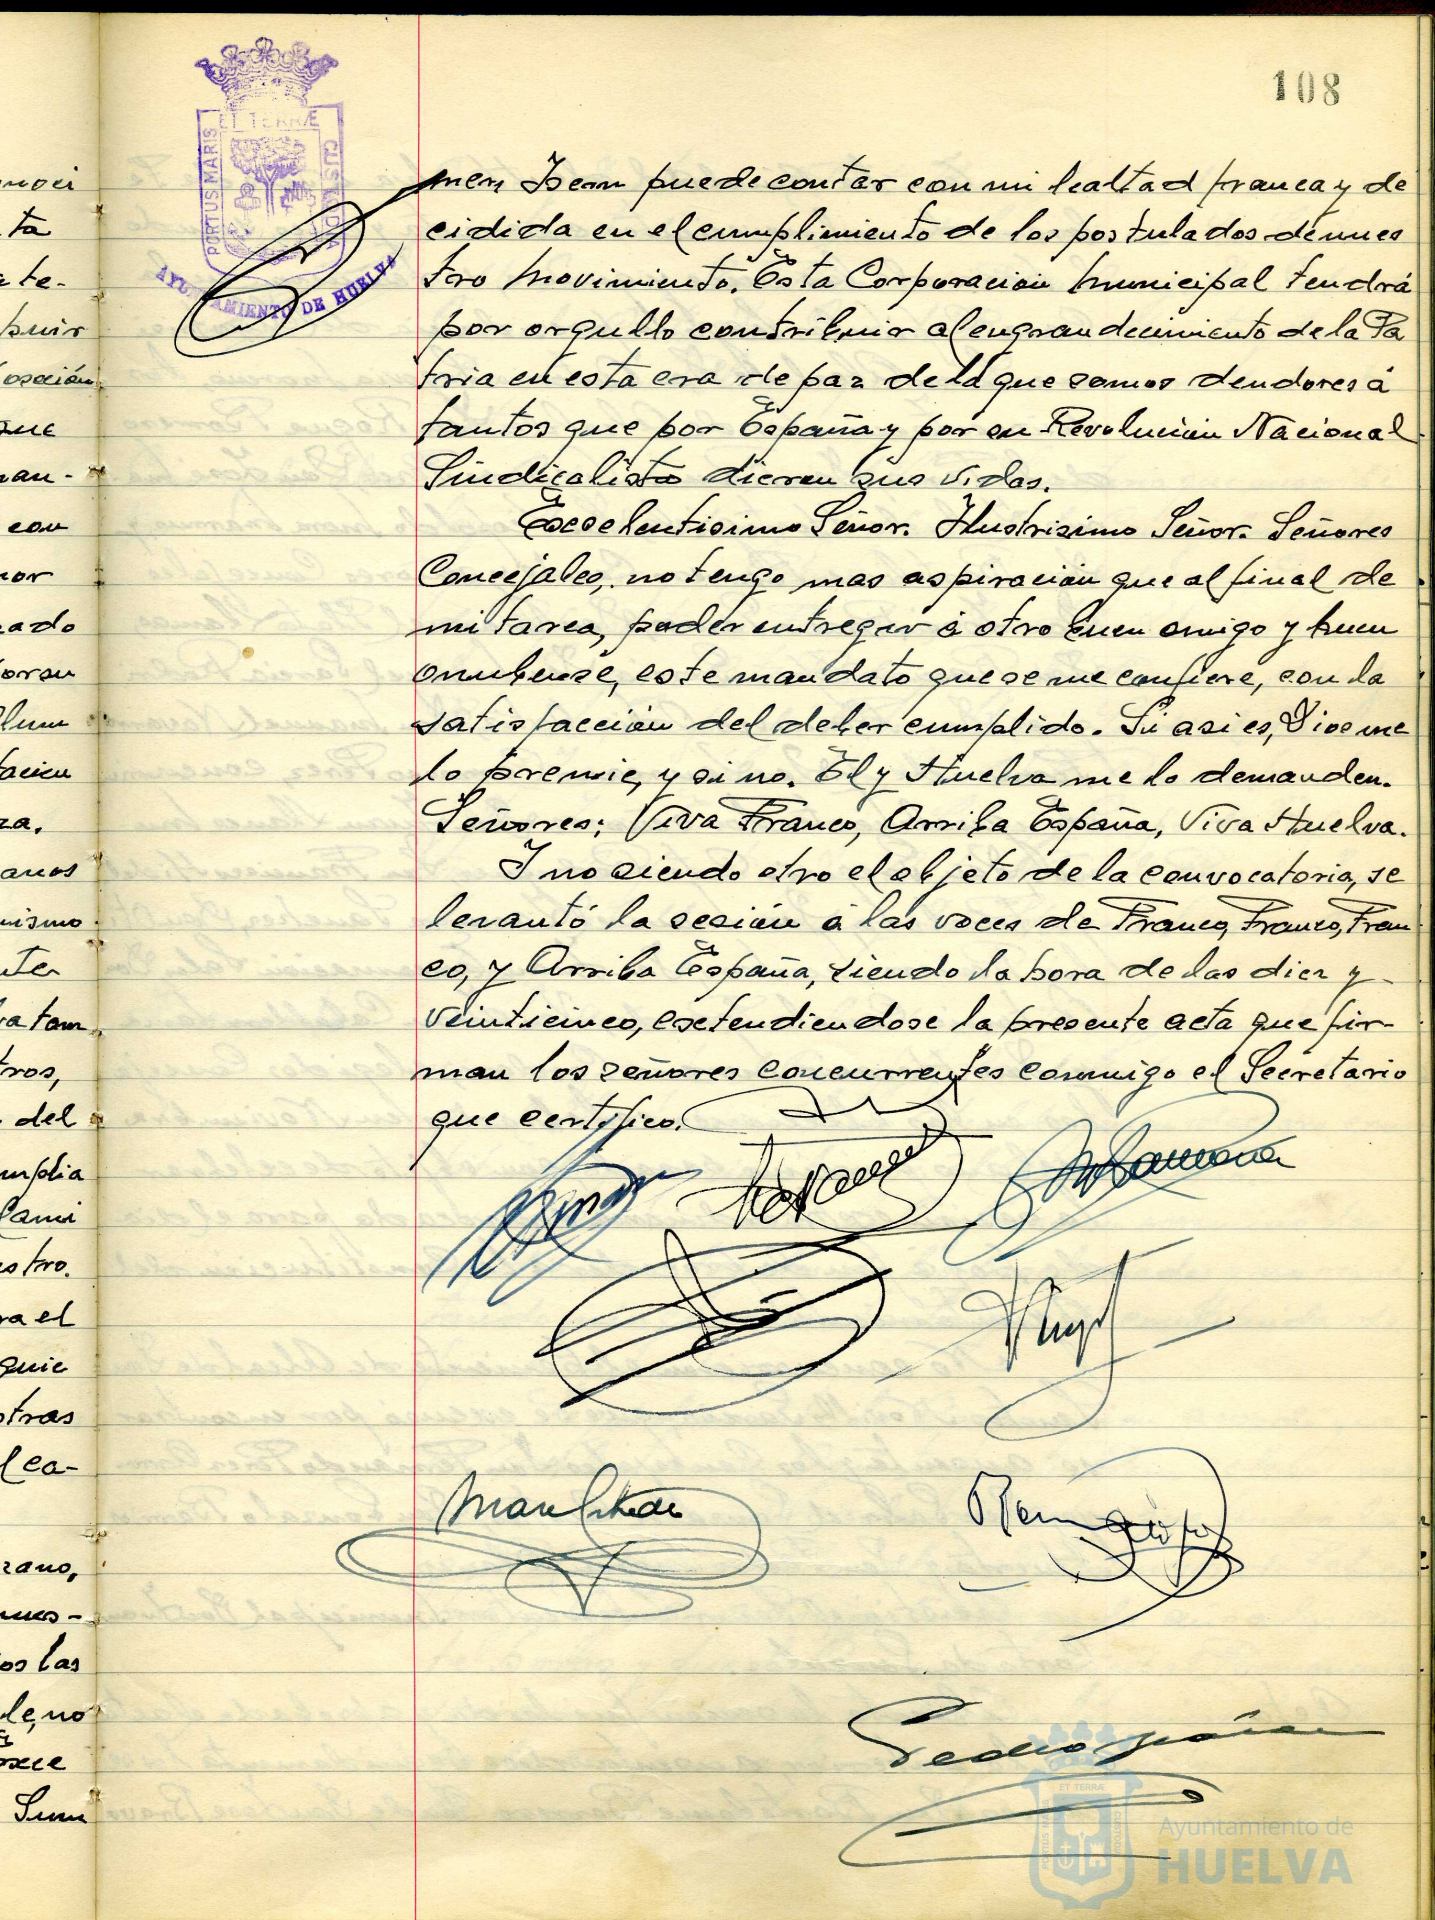 108
ET TERRÆ
PORTUS MARIS
CUSTODIA
AYUNTAMIENTO DE HUELVA
men Isern puede contar con mi lealtad franca y de
cidida en el cumplimiento de los postulados de nues
tro movimiento. Esta Corporacion municipal tendrá
por orgullo contribuir al engrandecimiento de la Pa
tria en esta era de paz de la que somos deudores á
tantos que por España y por su Revolucion Nacional
Sindicalista dieron sus vidas.
Escelentisimo Señor. Ilustrisimo Señor. Señores
Concejales, no tengo mas aspiración que al final de
mi tarea, poder entregar á otro buen amigo y buen
onubense, este mandato que se me confiere, con la
satisfacción del deber cumplido. Si asi es, Dios me
lo premie, y si no. El y Huelva me lo demanden.
Señores: Viva Franco, Arriba España, Viva Huelva.
I no siendo otro el objeto de la convocatoria, se
levantó la sesión a las voces de Franco, Franco, Fran
co, y Arriba España, siendo la hora de las diez y
veinticinco, estendiendose la presente acta que fir-
man los señores concurrentes conmigo el Secretario
que certifico.
ta
que
con
ado
anos
tros,
del
ra el
stras
ca-
rano,
os las
le, no
Pedro
ET TERRÆ
Ayuntamiento de
HUELVA